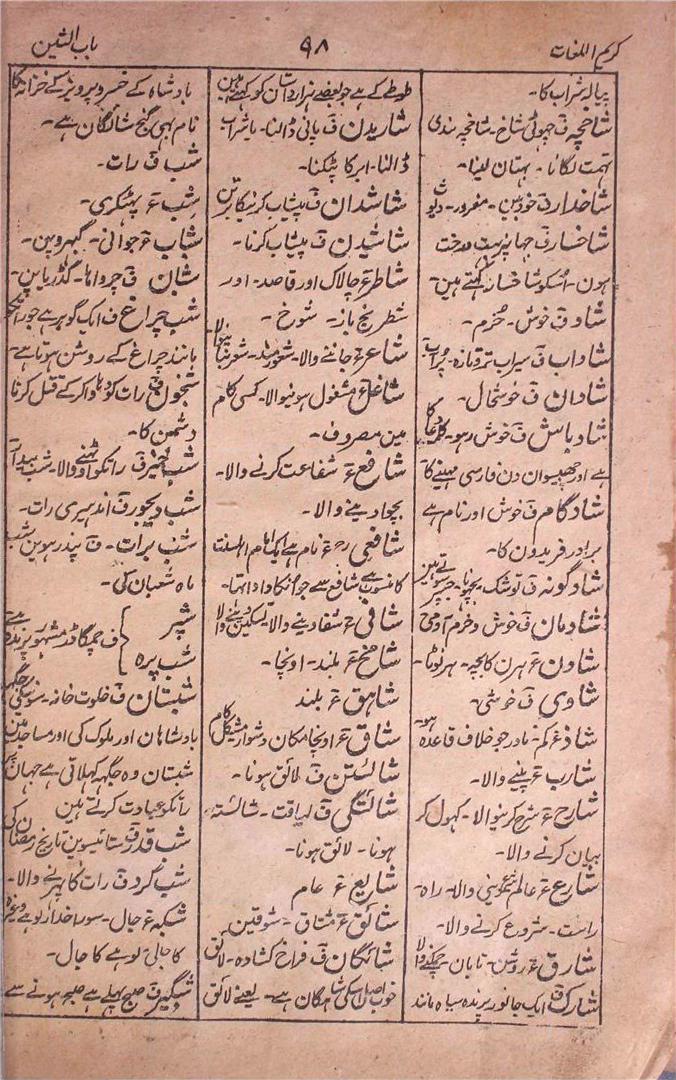 کریم اللغات
۹۸
باب الشین
پیالہ شراب کا۔
شاخچہ ف چھوٹی شاخ۔ شاخچہ بندی
تہمت لگانا۔ بہتان لینا۔
شاخدار ف خودبین۔ مغرور۔ دیوث
شاخسار ف جہاں بہت درخت
ہون۔ اسکو شاخسار کہتے ہین۔
شاد ف خوش۔ خرم۔
شاداب ف سیراب تروتازہ۔ پر آب
شادان ف خوشحال۔
شادباش ف خوش رہو۔ کلمہ دعا کا
ہے اور چھبیسوان دن فارسی مہینے کا
شادکام ف خوش اور نام ہے
برادر فریدون کا۔
شادگونہ ف توشک۔ بچھونا۔ جسپر سوتے ہین
شادمان ف خوش و خرم آدمی
شادن ع ہرن کا بچہ۔ ہرنوٹا۔
شادی ف خوشی۔
شاذ ع کم۔ نادر جو خلاف قاعدہ ہو۔
شارب ع پینے والا۔
شارح ع شرح کرنیوالا۔ کھول کر
بیان کرنے والا۔
شارع ع عالم دینی والا۔ راہ۔
راست۔ شروع کرنے والا۔
شارق ع روشن۔ تابان۔ چمکنے والا
شارک ف ایک جانور پرندہ سیاہ مانند
طوطے کے ہے جو بعضے ہزار داستان کو کہتے ہین
شاریدن ف پانی ڈالنا۔ یا شراب
ڈالنا۔ ابر کا ٹپکنا۔
شاشدان ف پیشاب کرنیکا برتن
شاشیدن ف پیشاب کرنا۔
شاطر ع چالاک اور قاصد۔ اور
شطرنج باز۔ شوخ۔
شاعر ع جاننے والا۔ شعورمند۔ شعر بنانیوالا
شاغل ع مشغول ہونیوالا۔ کسی کام
مین مصروف۔
شافع ع شفاعت کرنے والا۔
بچوا دینے والا۔
شافعی رح ع نام ہے ایک امام اہلسنت
کا منسوب ہے شافع سے جو انکا دادا تھا۔
شافی ع شفا دینے والا۔ تسکین دینے والا
شامخ ع بلند۔ اونچا۔
شاہق ع بلند
شاق ع اونچا مکان دشوار مشکل کام
شائستن ف لائق ہونا۔
شائستگی ف لیاقت۔ شائستہ
ہونا۔ لائق ہونا۔
شایع ع عام
شائق ع مشتاق۔ شوقین
شائگان ف فراخ کشادہ۔ لائق
خوب اصل اسکی شاہگان ہے۔ یعنے لائق
بادشاہ کے خسرو پرویز کے خزانہ کا
نام بہی گنج شائگان ہے۔
شب ف رات۔
شب ع پھٹکری۔
شباب ع جوانی۔ گبھروپن۔
شبان ف چرواہا۔ گڈریا پن۔
شب چراغ ف ایک گوہر ہے جو رات کو
مانند چراغ کے روشن ہوتا ہے۔
شبخون ف رات کو دہاوا کر کے قتل کرنا
دشمن کا۔
شب خیز ف راتکو اوٹھنے والا۔ شب بیدار
شب دیجور ف اندہیری رات۔
شب برات۔ ف پندرہوین شب
ماہ شعبان کی۔
شپر
شب پرہ
ف چمگادڑ مشہور پرندہ ہے
شبستان ف خلوت خانہ۔ سونیکی جگہ
بادشاہان اور ملوک کی اور مساجد مین
شبستان وہ جگہ کہلاتی ہے جہان کہ
راتکو عبادت کرتے ہین
شب قدر ف ستائیسوین تاریخ رمضان کی
شب گرد ف رات کا پہرنے والا۔
شبکہ ع جال۔ سوراخدار لوہے وغیرہ
کا جالی۔ لوہے کا جال۔
شبگیر ف صبح پہلے ہے صبح ہونے سے